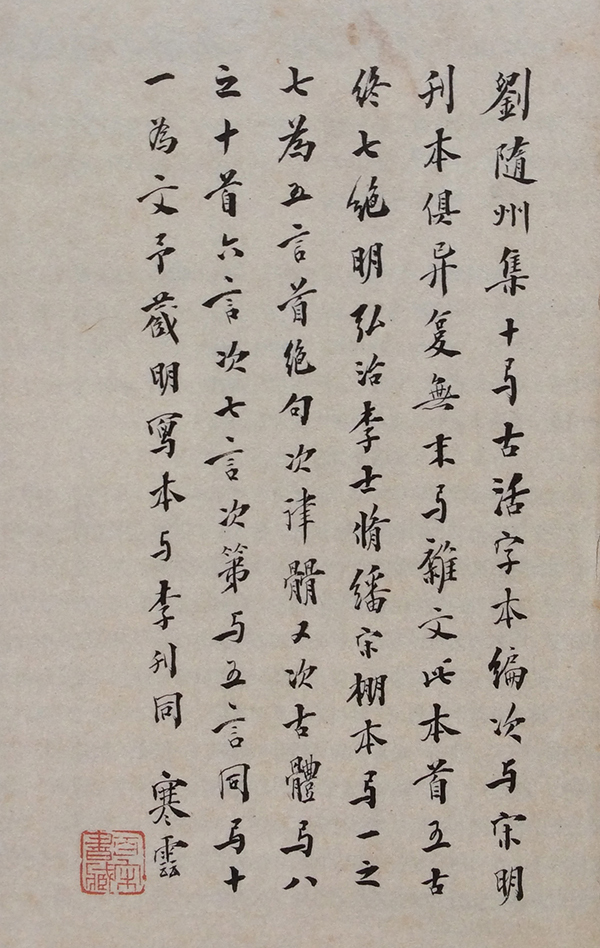 劉隨州集十弓古活字本編次与宋明
刊本俱异复無末弓雜文此本首五古
終七絕明弘治李士脩繙宋棚本弓一之
七為五言首絕句次律體又次古體弓八
之十首六言次七言次第与五言同弓十
一為文予藏明寫本与李刊同 寒雲
百宋書藏